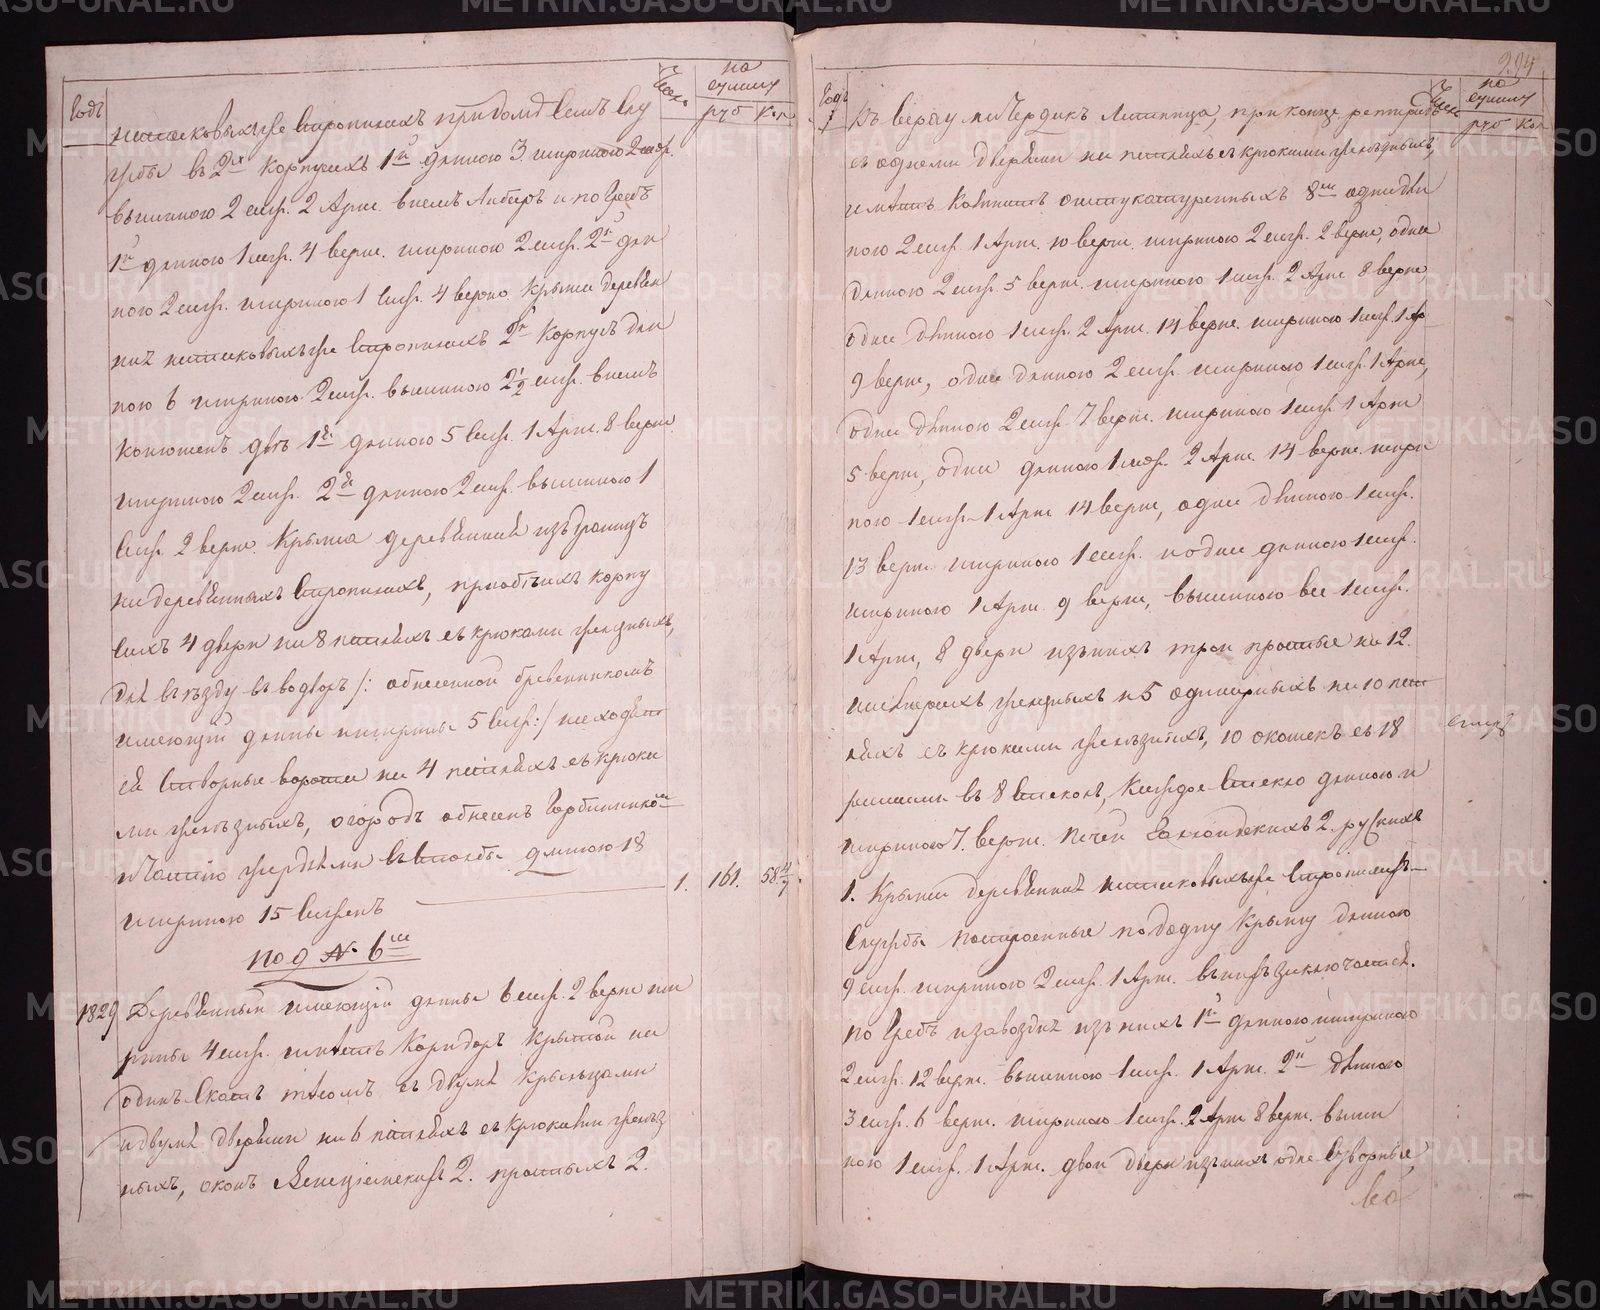 Годъ
Число
на сумму
руб
Коп
при домѣ семъ слу
жбы въ 2х корпусахъ 1й длиною 3 шириною 2 саж.
вышиною 2 саж. 2 Арш. въ немъ Анбаръ и погребъ
1й длиною 1 саж. 4 верш. шириною 2 саж. 2й дли
ною 2 саж. шириною 1 саж. 4 верш. Крыша деревян
стропилахъ 2й Корпусъ дли
ною 6 шириною 2 саж. вышиною 2½ саж. въ немъ
конюшенъ двѣ 1я длиною 5 саж. 1 Арш. 8 верш.
шириною 2 саж. 2я длиною 2 саж. вышиною 1
саж. 2 верш. Крыша деревянная изъ драницъ
на деревянныхъ стропилахъ, при обѣихъ корпу
сахъ 4 двери на 8 петляхъ съ крюками желѣзныхъ,
для въѣзду въ во дворъ /: обнесенной бревенникомъ
имеющій длины и ширины 5 саж: /
створные вороты на 4 петляхъ съ крюка
ми желѣзныхъ, огородъ обнесенъ
частію жердями въ столбы длиною 18
шириною 15 саженъ
1. 161. 58 4/7
под № 6м
1829
Деревянный имеющій длины 6 саж. 2 верш. ши
рины 4 саж. имѣетъ Коридоръ крытой на
одинъ скатъ тесомъ съ двумя крыльцами
и двумя дверьми на 6 петляхъ съ крюками желѣз
ныхъ, оконъ Венеціенскихъ 2. простыхъ 2.
294
Годъ
Число
на сумму
руб
Коп
въ верху на чердакъ лестница, при конце
съ однеми дверьми на петляхъ съ крюками желѣзныхъ,
имѣетъ Комнатъ оштукатуренныхъ 8м одна дли
ною 2 саж. 1 Арш. 10 верш. шириною 2 саж. 2 верш, одна
длиною 2 саж. 5 верш. шириною 1 саж. 2 Арш 8 верш
одна длиною 1 саж. 2 Арш. 14 верш. шириною 1 саж. 1 Ар
9 верш, одна длиною 2 саж. шириною 1 саж. 1 Арш,
одна длиною 2 саж. 7 верш. шириною 1 саж 1 Арш
5 верш, одна длиною 1 саж. 2 Арш. 14 верш. шири
ною 1 саж. 1 Арш 14 верш, одна длиною 1 саж.
13 верш. шириною 1 саж. и одна длиною 1 саж.
шириною 1 Арш. 9 верш, вышиною все 1 саж.
1 Арш, 8 двери изъ нихъ трои простые на 12.
шалнерахъ желѣзныхъ и 5 одинарныхъ на 10 пет
ляхъ съ крюками желѣзныхъ, 10 окошекъ съ 18
рамами въ 8 стеколъ, Каждое стекло длиною и
шириною 7. верш. печей Голландскихъ 2. рускихъ
1. Крыша деревянная стропилахъ
Службы построенные подъ одну крышу длиною
9 саж. шириною 2 саж. 1 Арш. въ нихъ заключаются.
погребъ и завозня изъ нихъ 1й длиною и шириною
2 саж. 12 верш. вышиною 1 саж. 1 Арш. 2й длиною
3 саж. 6 верш. шириною 1 саж. 2 Арш 8 верш. выши
ною 1 саж. 1 Арш. двои двери изъ нихъ одне створные,
METRIKI.GASO-URAL.RU